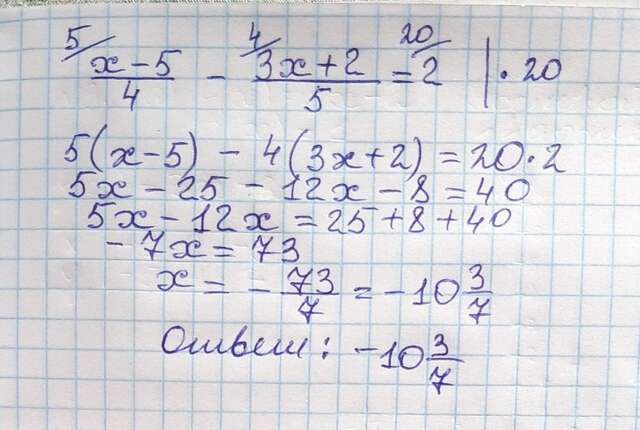 5/ (x-5)/4 - 4/ (3x+2)/5 = 20/ 2 | · 20
5(x-5) - 4(3x+2) = 20·2
5x - 25 - 12x - 8 = 40
5x - 12x = 25 + 8 + 40
-7x = 73
x = - 73/7 = -10 3/7
Ответ: -10 3/7